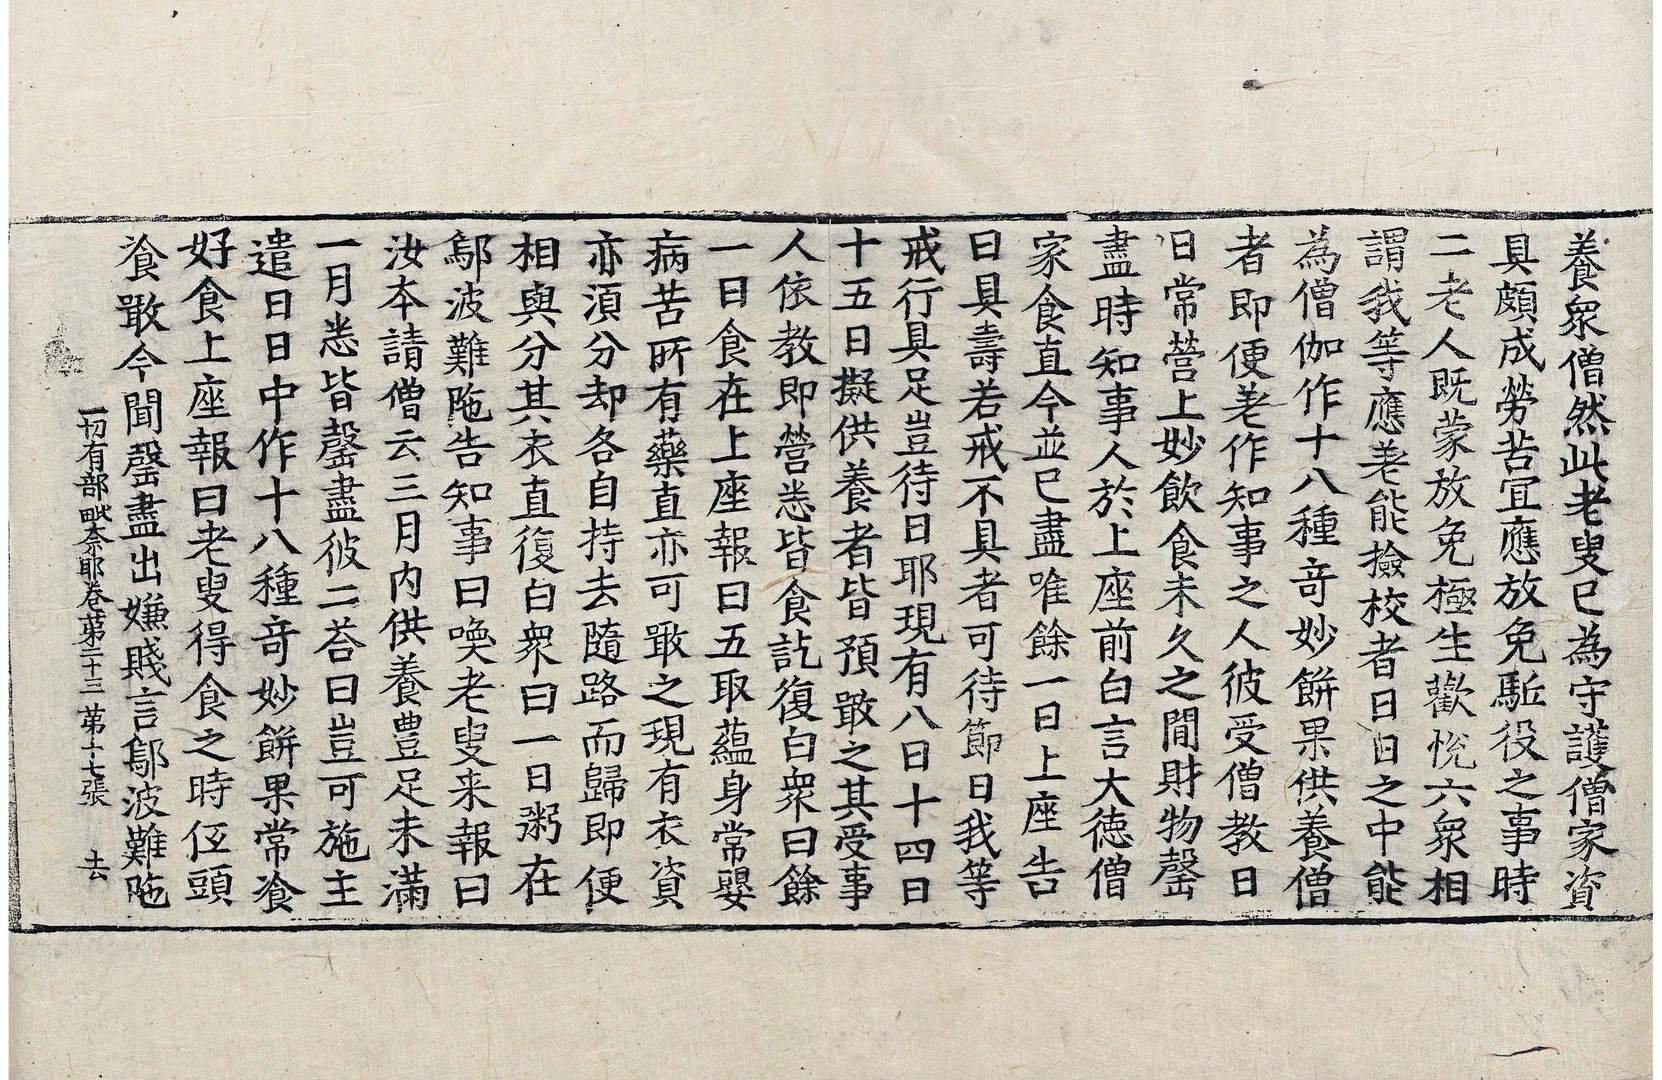 養衆僧然此老叟已為守護僧家資
具頗成勞苦冝應放免駈役之事時
二老人既蒙放免極生歡悅六衆相
謂我等應差能撿校者日日之中能
為僧伽作十八種竒妙餅果供養僧
者即便差作知事之人彼受僧教日
日常營上妙飲食未久之間財物罄
盡時知事人於上座前白言大德僧
家食直今並已盡唯餘一日上座告
曰具壽若戒不具者可待節日我等
戒行具足豈待日耶現有八日十四日
十五日擬供養者皆預噉之其受事
人依教即營悉皆食訖復白衆曰餘
一日食在上座報曰五取蘊身常嬰
病苦所有藥直亦可噉之現有衣資
亦湏分却各自持去隨路而歸即便
相與分其衣直復白衆曰一日粥在
鄔波難陁告知事曰喚老叟来報曰
汝本請僧云三月内供養豊足未滿
一月悉皆罄盡彼二荅曰豈可施主
遣日日中作十八種竒妙餅果常飡
好食上座報曰老叟得食之時伍頭
飡噉今聞罄盡出嫌賤言鄔波難陁
一切有部毗奈耶卷苐二十三 苐十七張 去